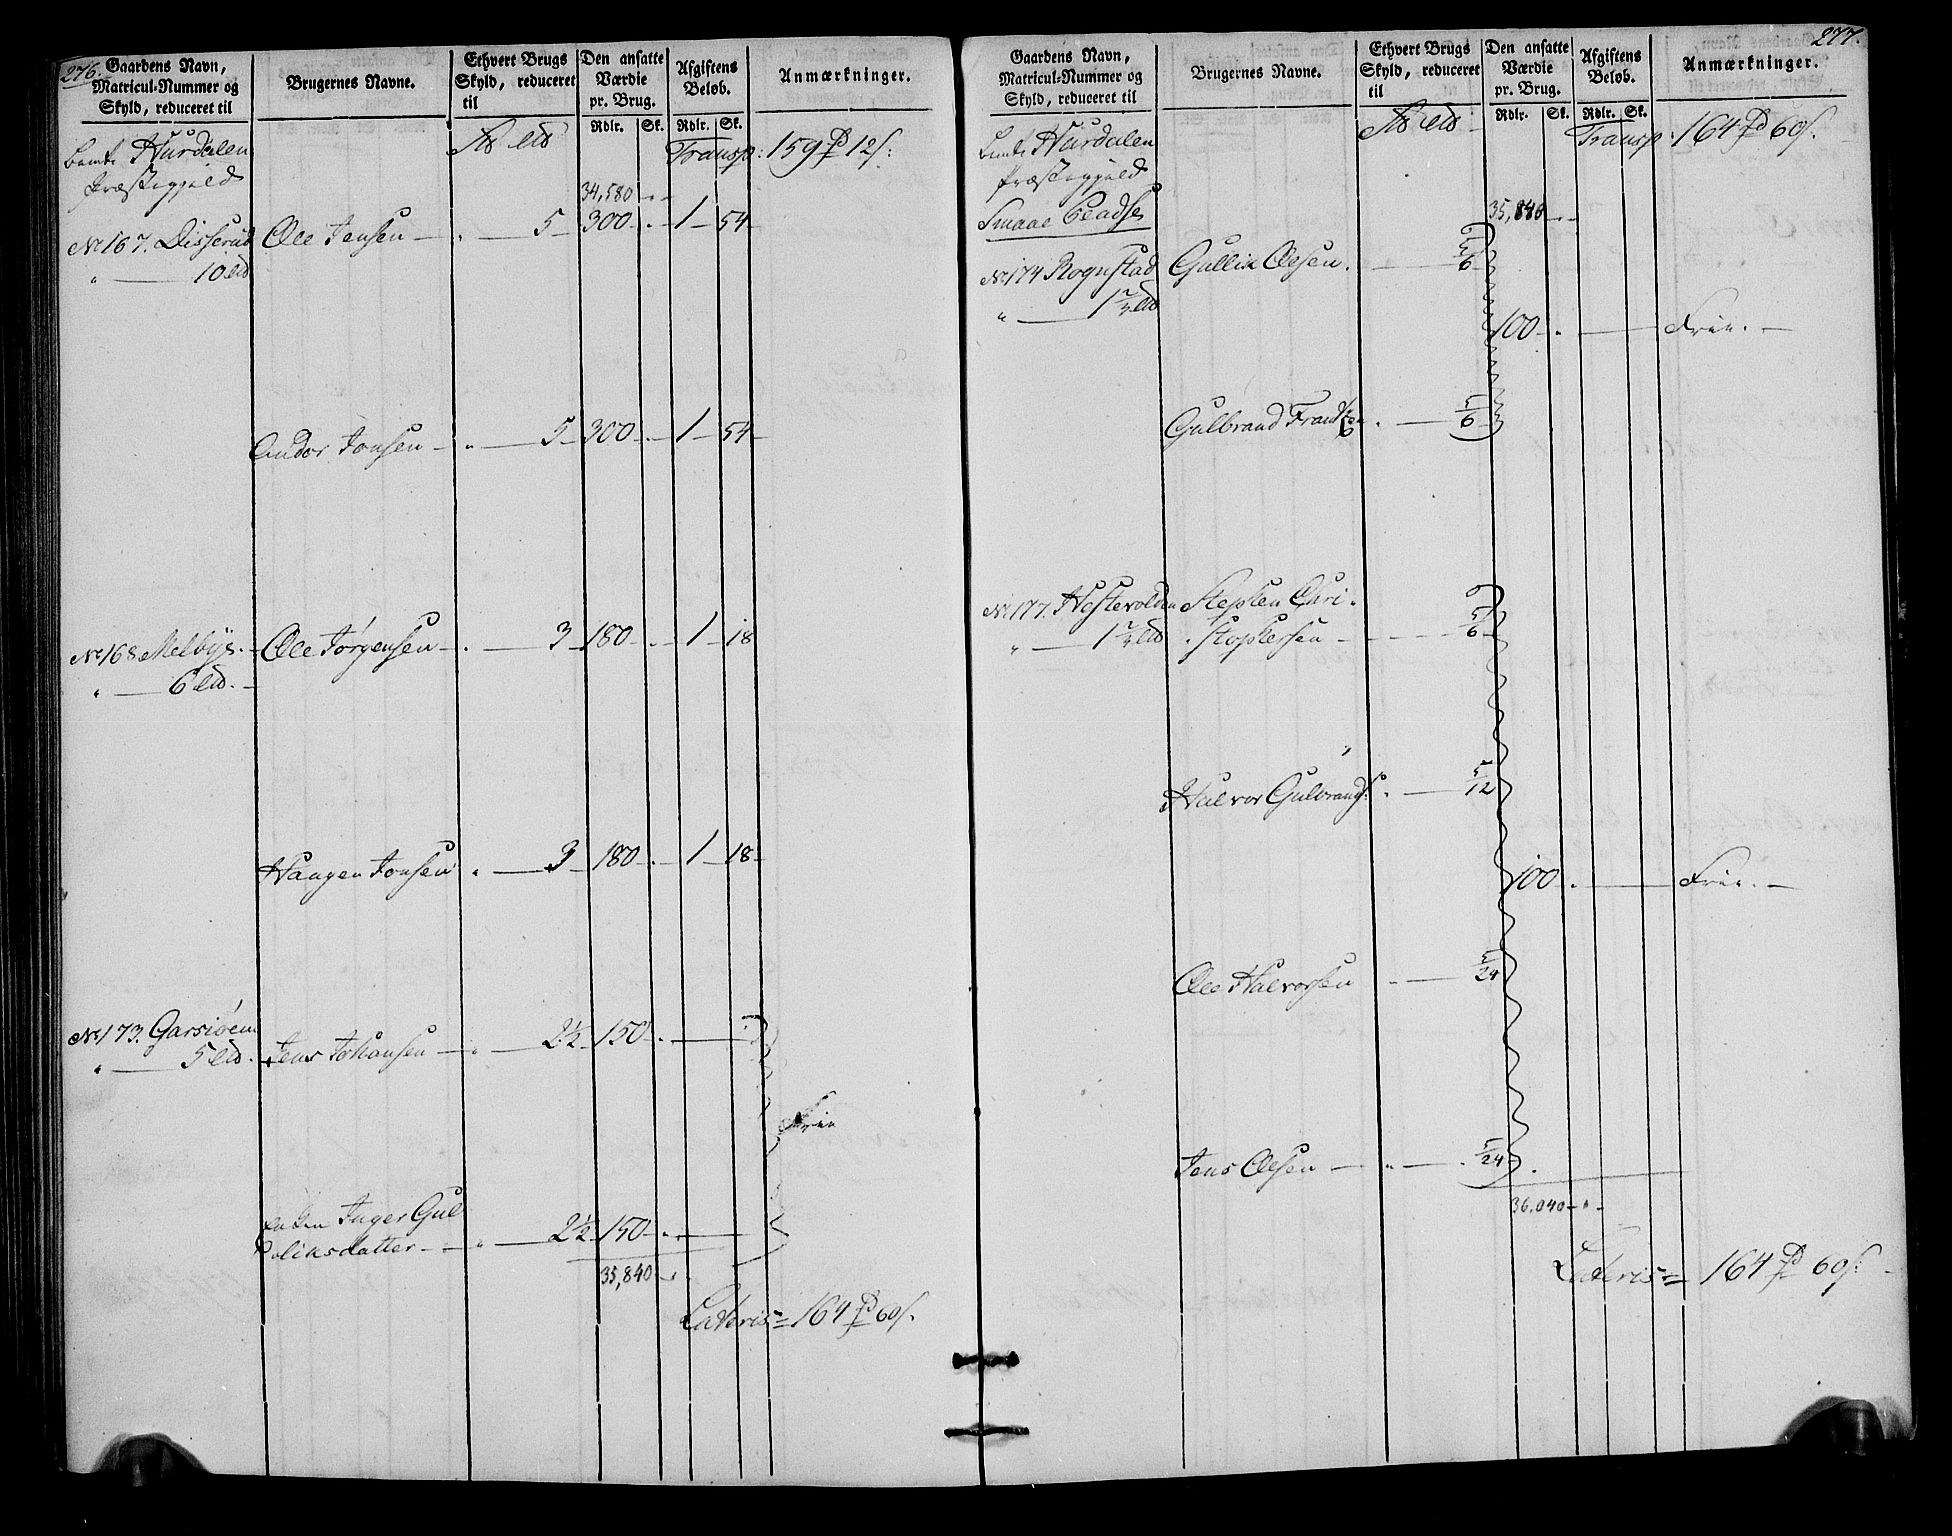 276.
Gaardens Navn,
Matricul-Nummer og
Skyld, reduceret til
Brugernes Navne.
Ethvert Brugs
Skyld, reduceret
til
Den ansatte
Værdie
pr. Brug.
Rdlr. Sk.
Afgiftens
Beløb.
Rdlr. Sk.
Anmærkninger.
Hurdalen
Præstegjeld
Transp: 159 12 s:
34,580
No 167. Disserud Ole Jensen 5 300 1 54
" 10
Andor Jonsen 5 300 1 54
No 168 Melbye Ole Jørgensen 3 180 1 18
" 6
Haagen Jonsen 3 180 1 18
No 173. Garsiøen
" 5 Jens Johansen 2½ 150
Frie
Enken Inger Gul
2½ 150
35,840
Lateris = 164 60 s.
277.
Gaardens Navn,
Matricul-Nummer og
Skyld, reduceret til
Brugernes Navne.
Ethvert Brugs
Skyld, reduceret
til
Den ansatte
Værdie
pr. Brug.
Rdlr. Sk.
Afgiftens
Beløb.
Rdlr. Sk.
Anmærkninger.
Hurdalen
Præstegjeld
Transp. 164 60 s.
Smaae
35,840
No 174 Rognstad Gullik Olesen. 5/6
100 Frie.
Gulbrand 5/6
No 177. Hestevolden Stephen Chri-
stophersen 5/6
Halvor Gulbrands: 5/12
100 Frie.
Ole Halvorsen 5/24
Jens Olesen 5/24
36,040
Lateris = 164 60 s.